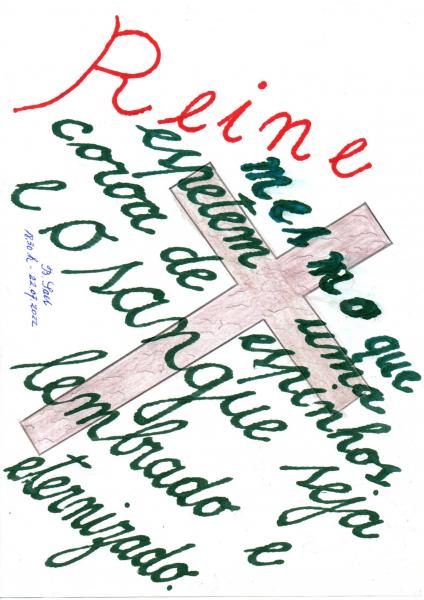 Reine
mesmo que
espetem uma
coroa de espinhos
e o sangue seja
lembrado e
eternizado.
18:30 h - 22.07.2022